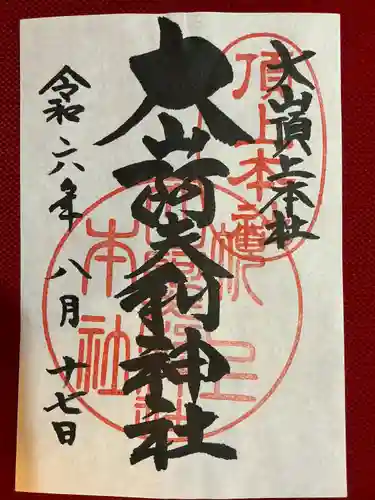 大山頂上本社
大山阿夫利神社
令和六年八月十七日
頂上本社